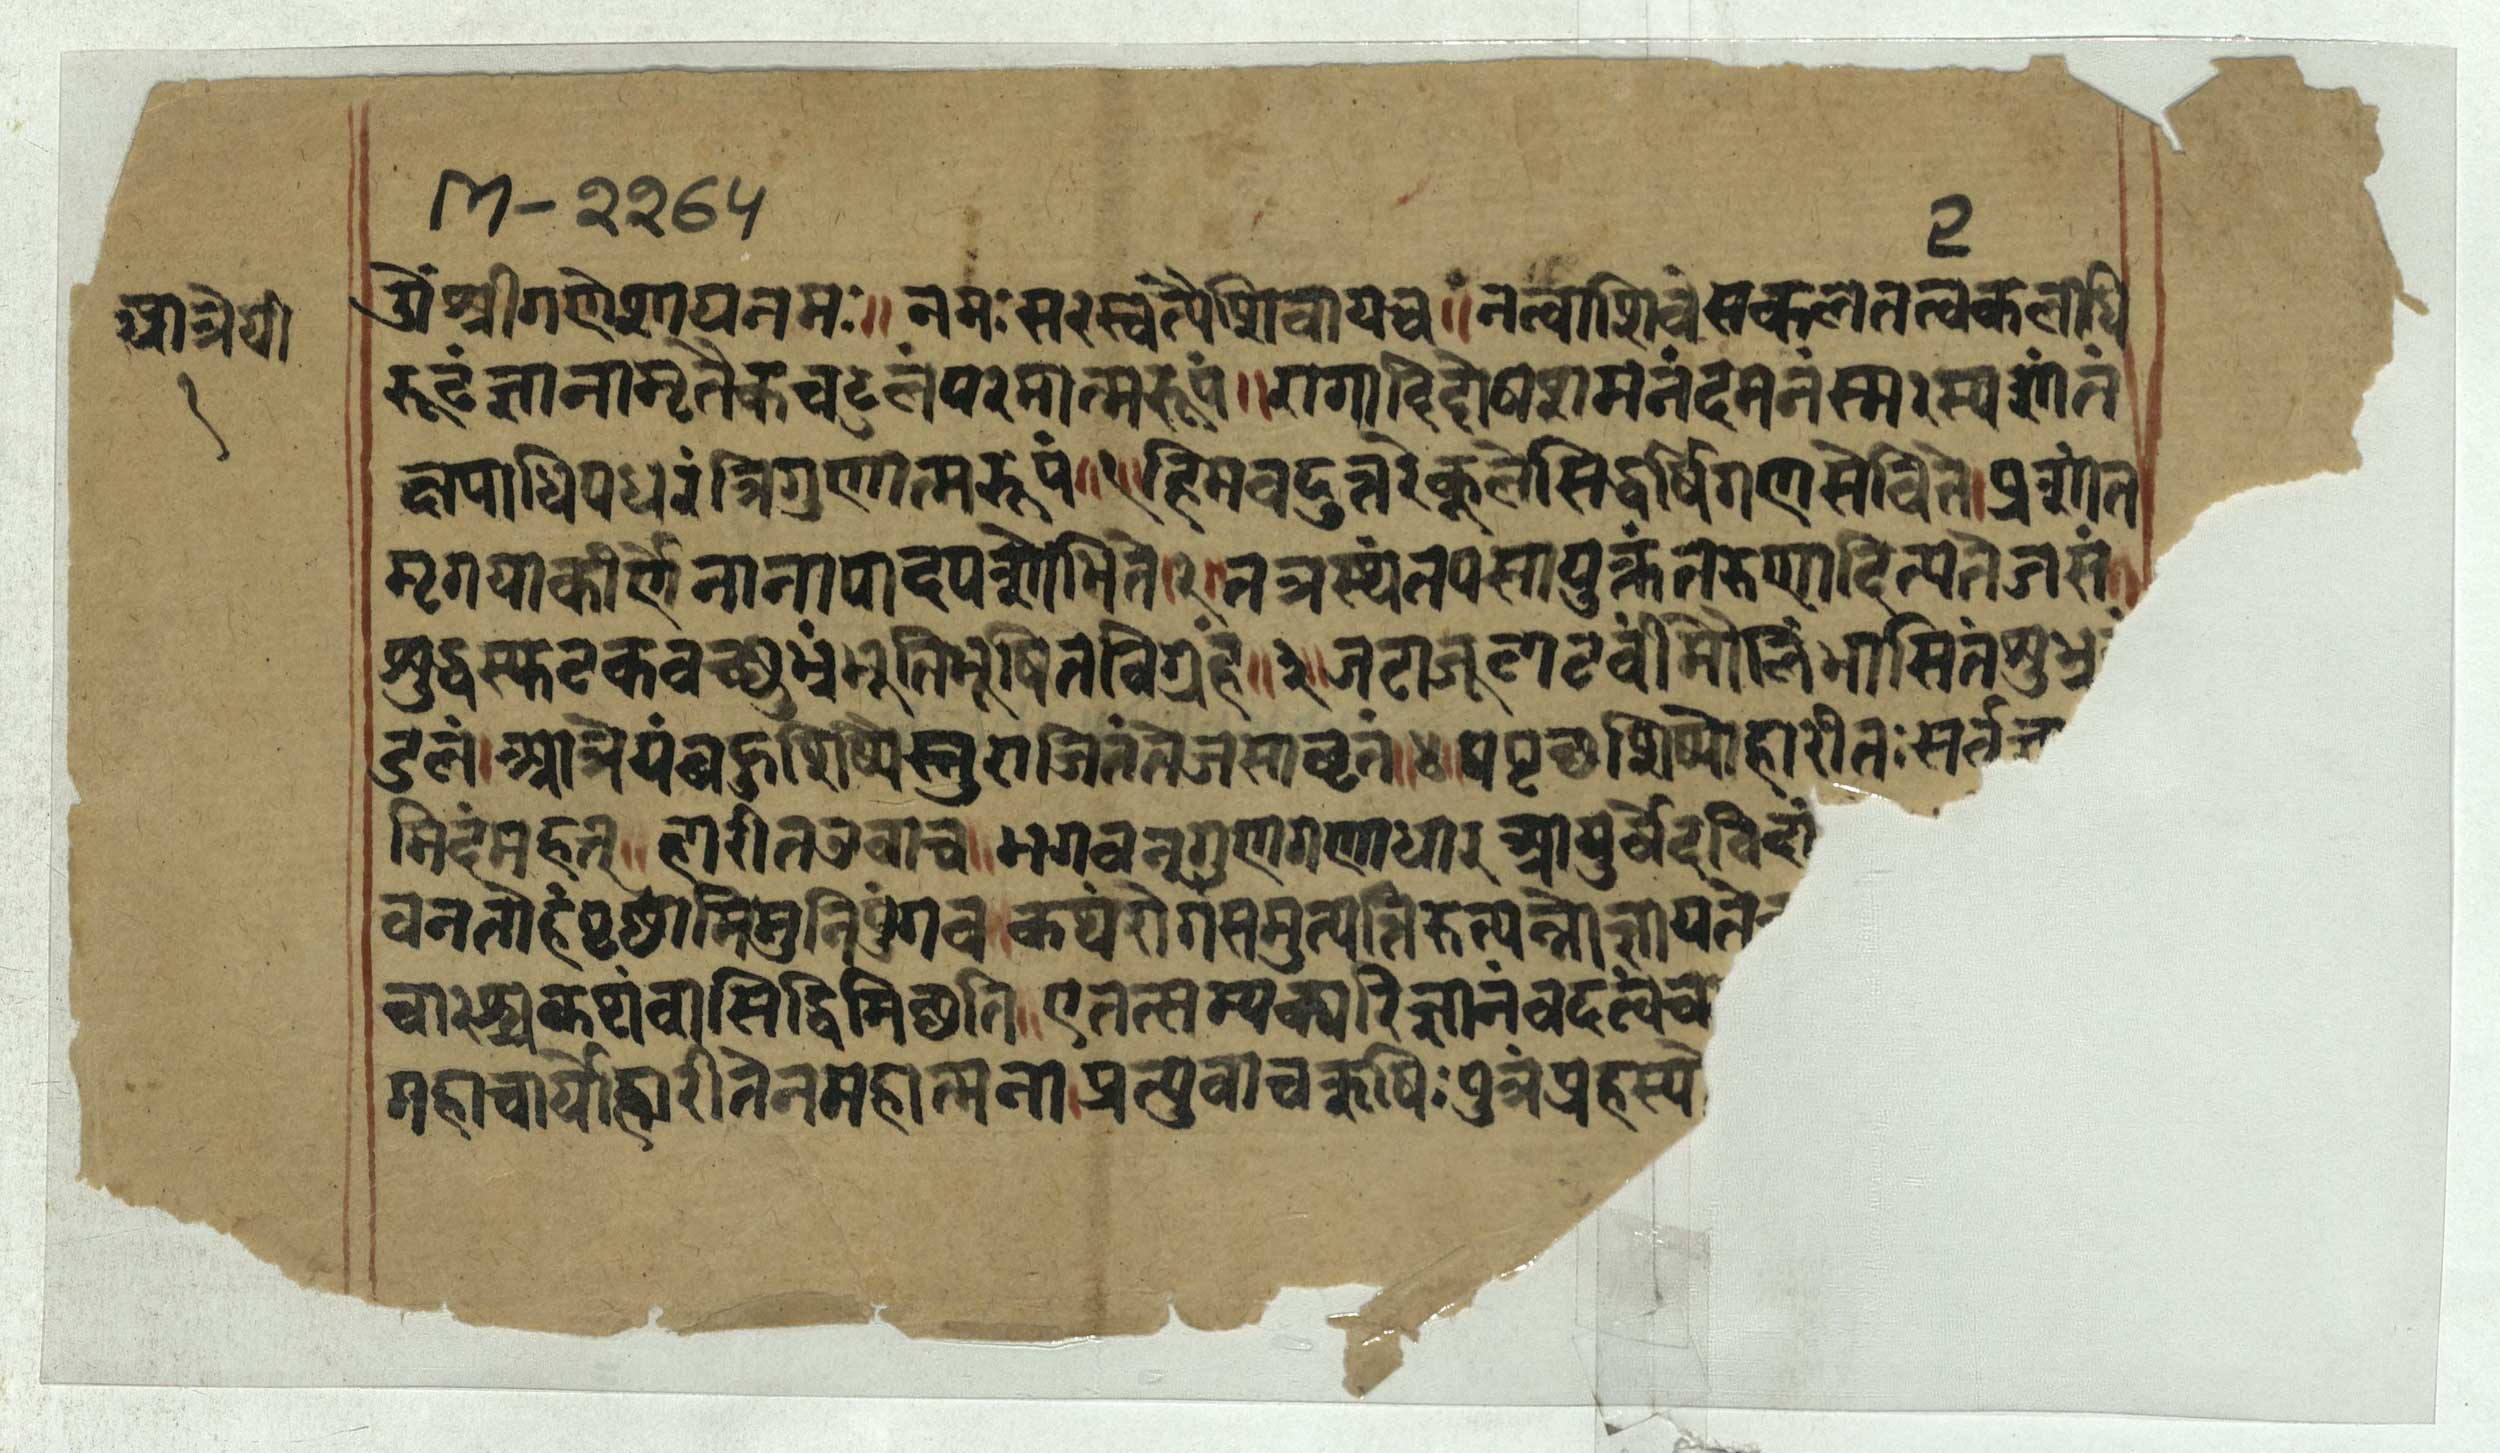 M-२२64
2
आत्रेयी
१
ओं श्रीगणेशायनमः॥ नमःसरस्वंत्यैशिवायच॥नत्वाशिवंसकलतत्वकलाधि
रूढंज्ञानामृतैकचटुलंपरमात्मरूपं॥रागादिदोषशमनंदमनंस्मरस्यशांतं
क्षपाधिपधरंत्रिगुणात्मरूपं॥१॥हिमवदुत्तरेकूलेसिद्धर्षिगणसेविते।प्रशांत
मृगयाकीर्णेनानापादपशोभिते।२।तत्रस्थंतपसायुक्तंतरुणादित्यतेजसं॥
शुद्धस्फटकवच्छुभ्रंभूतिभूषितविग्रहं॥३॥जटाजूटाटवीमौलिंभासितंशुभ्र
डलं।आत्रेयंबहुशिष्यैस्तुराजितंतेजसावृतं॥४॥पपृच्छशिष्योहारीतः
मिदंमहत्॥हारीतउवाच॥भगवन्गुणगणाधारआयुर्वेदविदां
वनतोहंपृछामिमुनिपुंगव॥कथंरोगसमुत्पत्तिरुत्पन्नोज्ञायते
सिद्धिमिछति॥एतत्सम्यक्परिज्ञानंवदत्वंच
महाचार्योहारीतेनमहात्मना।प्रत्युवाचऋषिःपुत्रंप्रहस्ये